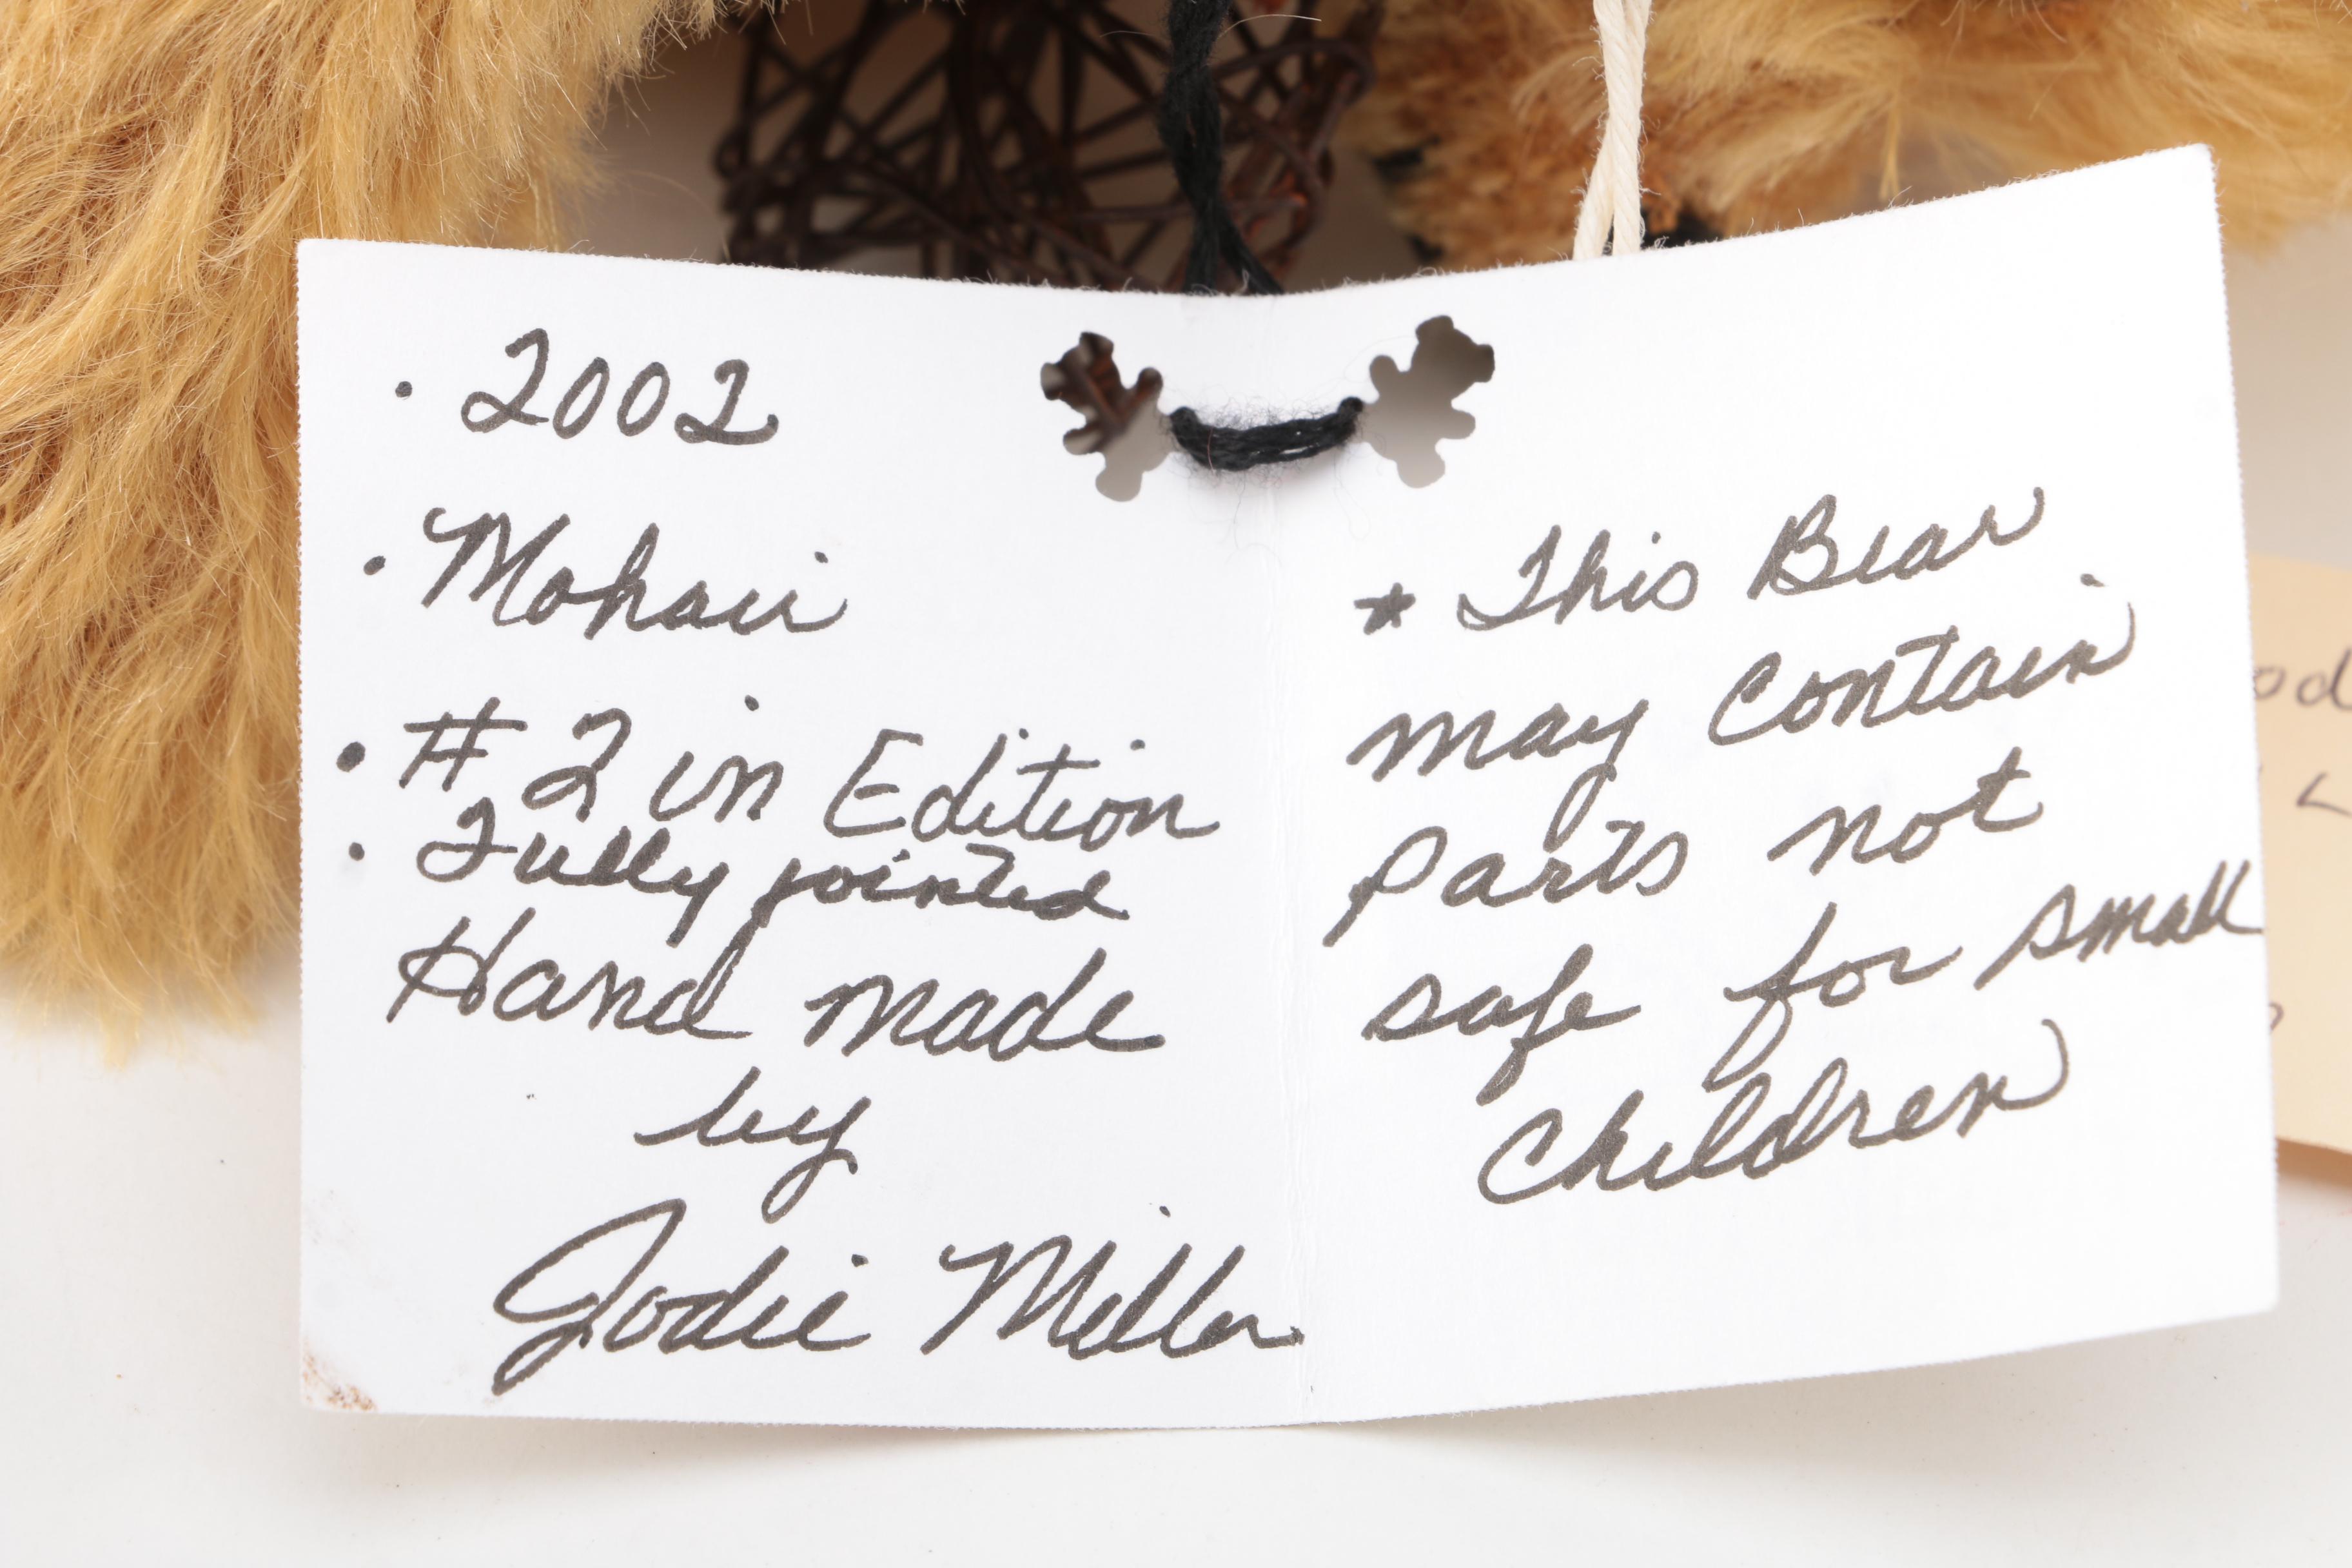 · 2002
· Mohair
· # 2 in Edition
· Fully jointed
Hand made
by
Jodie Miller
* This Bear
may contain
parts not
safe for small
children